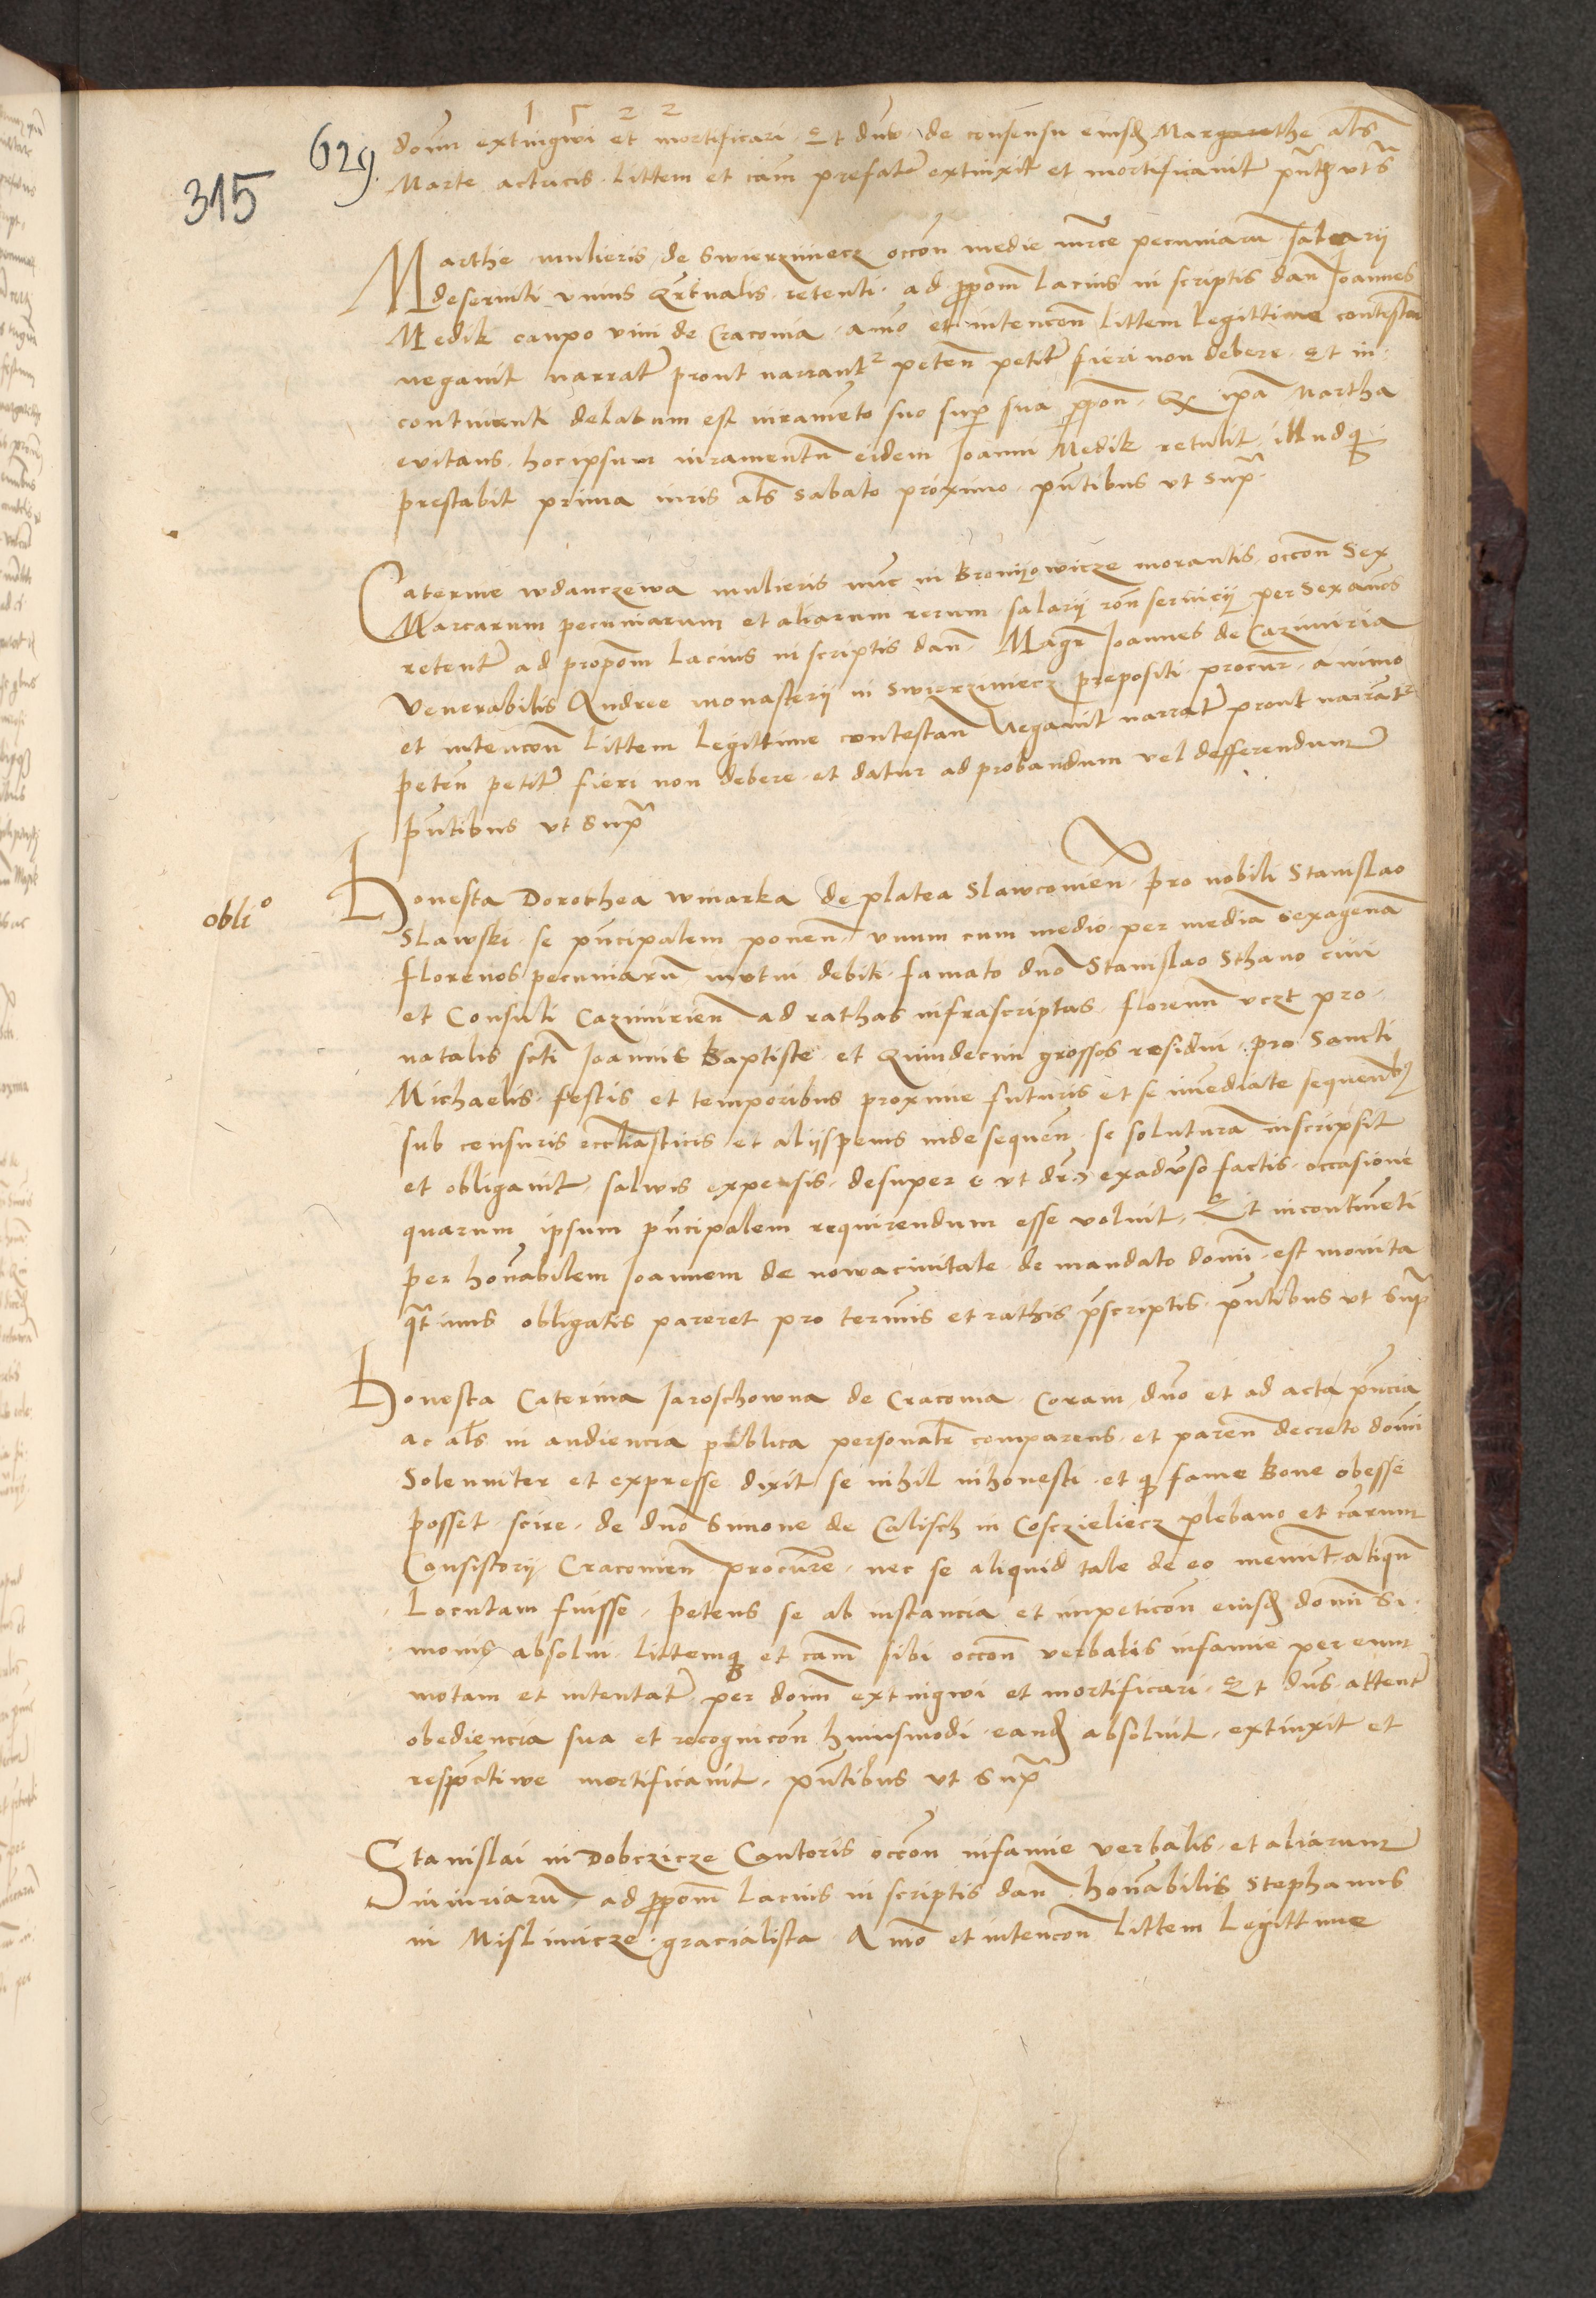 1522
629.
315
domini extingwi et mortificari. Et dns de consensu eiusdem Margarethe als
Marte actricis. littem et cam prefatam extinxit et mortificavit pntibus ut s
Marthe mulieris de Swierziniecz occon medie mrce pecuniaru salarii
deserviti unius Qrtualis retenti. ad propom lacius in scriptis dan Joannes
Medik caupo vini de Cracovia. amo et intencon littem legittime contestan
negavit narrata prout narrantr peten petita fieri non debere. Et in
continenti delatum est iuramento suo super sua propon. Que ipa Martha
evitans. hoc ipsum iuramentu eidem Joanni Medik retulit, illudq
prestabit prima iuris als sabato proximo. pntibus ut supra
Caterine wdanczewa mulieris nunc in Bronijowicze morantis. occon Sex
Marcarum pecuniarum et aliarum rerum salarii ron servicij per sex annos
retentar ad propom lacius in scriptis dan. Magr Joannes de Cazimiria
Venerabilis Andree monasterij in Swierziniecz prepositi procur. animo
et intencon littem legittime contestan Negavit narrata prout narrantr
peten petita fieri non debere. et datur ad probandum vel defferendum
pntibus ut supra
obli°
Honesta Dorothea winarka de platea Slawconien. pro nobili Stanislao
Slawski. se principalem ponen. unum cum medio per media sexagena
florenos pecuniaru mutui debiti. famato dno Stanislao Sthano civi
et Consuli Cazimirien ad rathas infrascriptas. florenum vczt pro
natalis scti Joannis Baptiste. et Quindecim grossos residui. pro Sancti
Michaelis. festis et temporibus proxime futuris et se imediate sequentibus
sub censuris ecclesiasticis et alijs penis inde sequen. se soluturam inscripsit
et obligavit, salvis expensis. desuper ut dr exadverso factis. occasione
quarum ipsum principalem requirendum esse voluit, Et incontinenti
per honorabilem Joannem de nowacivitate de mandato domini. est monita
qtinus obligatis pareret pro terminis et rathis prescriptis. pntibus ut supra
Honesta Caterina Jaroschowna de Cracovia. Coram dno et ad acta pncia
ac als in audiencia publica personalr comparens. et paren decreto domini
Solenniter et expresse dixit se nihil inhonesti. et q fame bone obesse
posset scire. de dno Simone de Calisch in Cosczieliecz plebano et carum
Consistorij Cracovien procurre. nec se aliquid tale de eo meminit aliqn
locutam fuisse. petens se ab instancia et impeticon eiusdem domini Si
monis absolvi littemq et cam sibi occon verbalis infamie per eum
motam et intentatam per domin extingwi et mortificari. Et dns attenta
obediencia sua et recognicon huiusmodi. eandem absolvit, extinxit et
respective mortificavit, pntibus ut supra
Stanislai in Dobczicze Cantoris occon infamie verbalis et aliarum
iniuriaru ad propom lacius in scriptis dan. honorabilis Stephanus
in Mislimicze gracialista Amo et intencon littem legittime